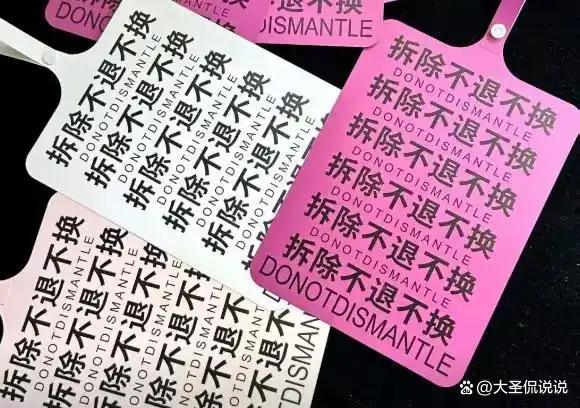 DONOTDISMANTLE
DONOTDISMANTLE
拆除不退不换
DONOTDISMANTLE
拆除不退不换
DONOTDISMANTLE
拆除不退不换
DONOTDISMANTLE
拆除不退不换
DONOTDISMANTLE
拆除不退不换
DONOTDISMANTLE
拆除不退不换
DONOTDISMANTLE
拆除不退不换
DONOTDISMANTLE
拆除不退不换
DONOTDISMANTLE
拆除不退不换
DONOTDISMANTLE
拆除不退不换
DONOTDISMANTLE
拆除不退不换
DONOTDISMANTLE
拆除不退不换
DONOTDISMANTLE
拆除不退不换
DONOTDISMANTLE
拆除不退不换
DONOTDISMANTLE
大圣侃说说